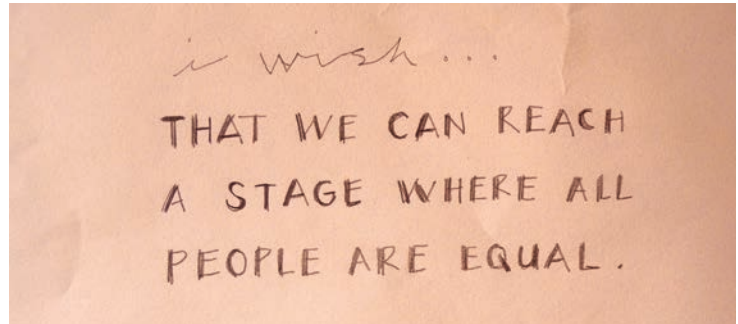 i wish...
THAT WE CAN REACH
A STAGE WHERE ALL
PEOPLE ARE EQUAL.